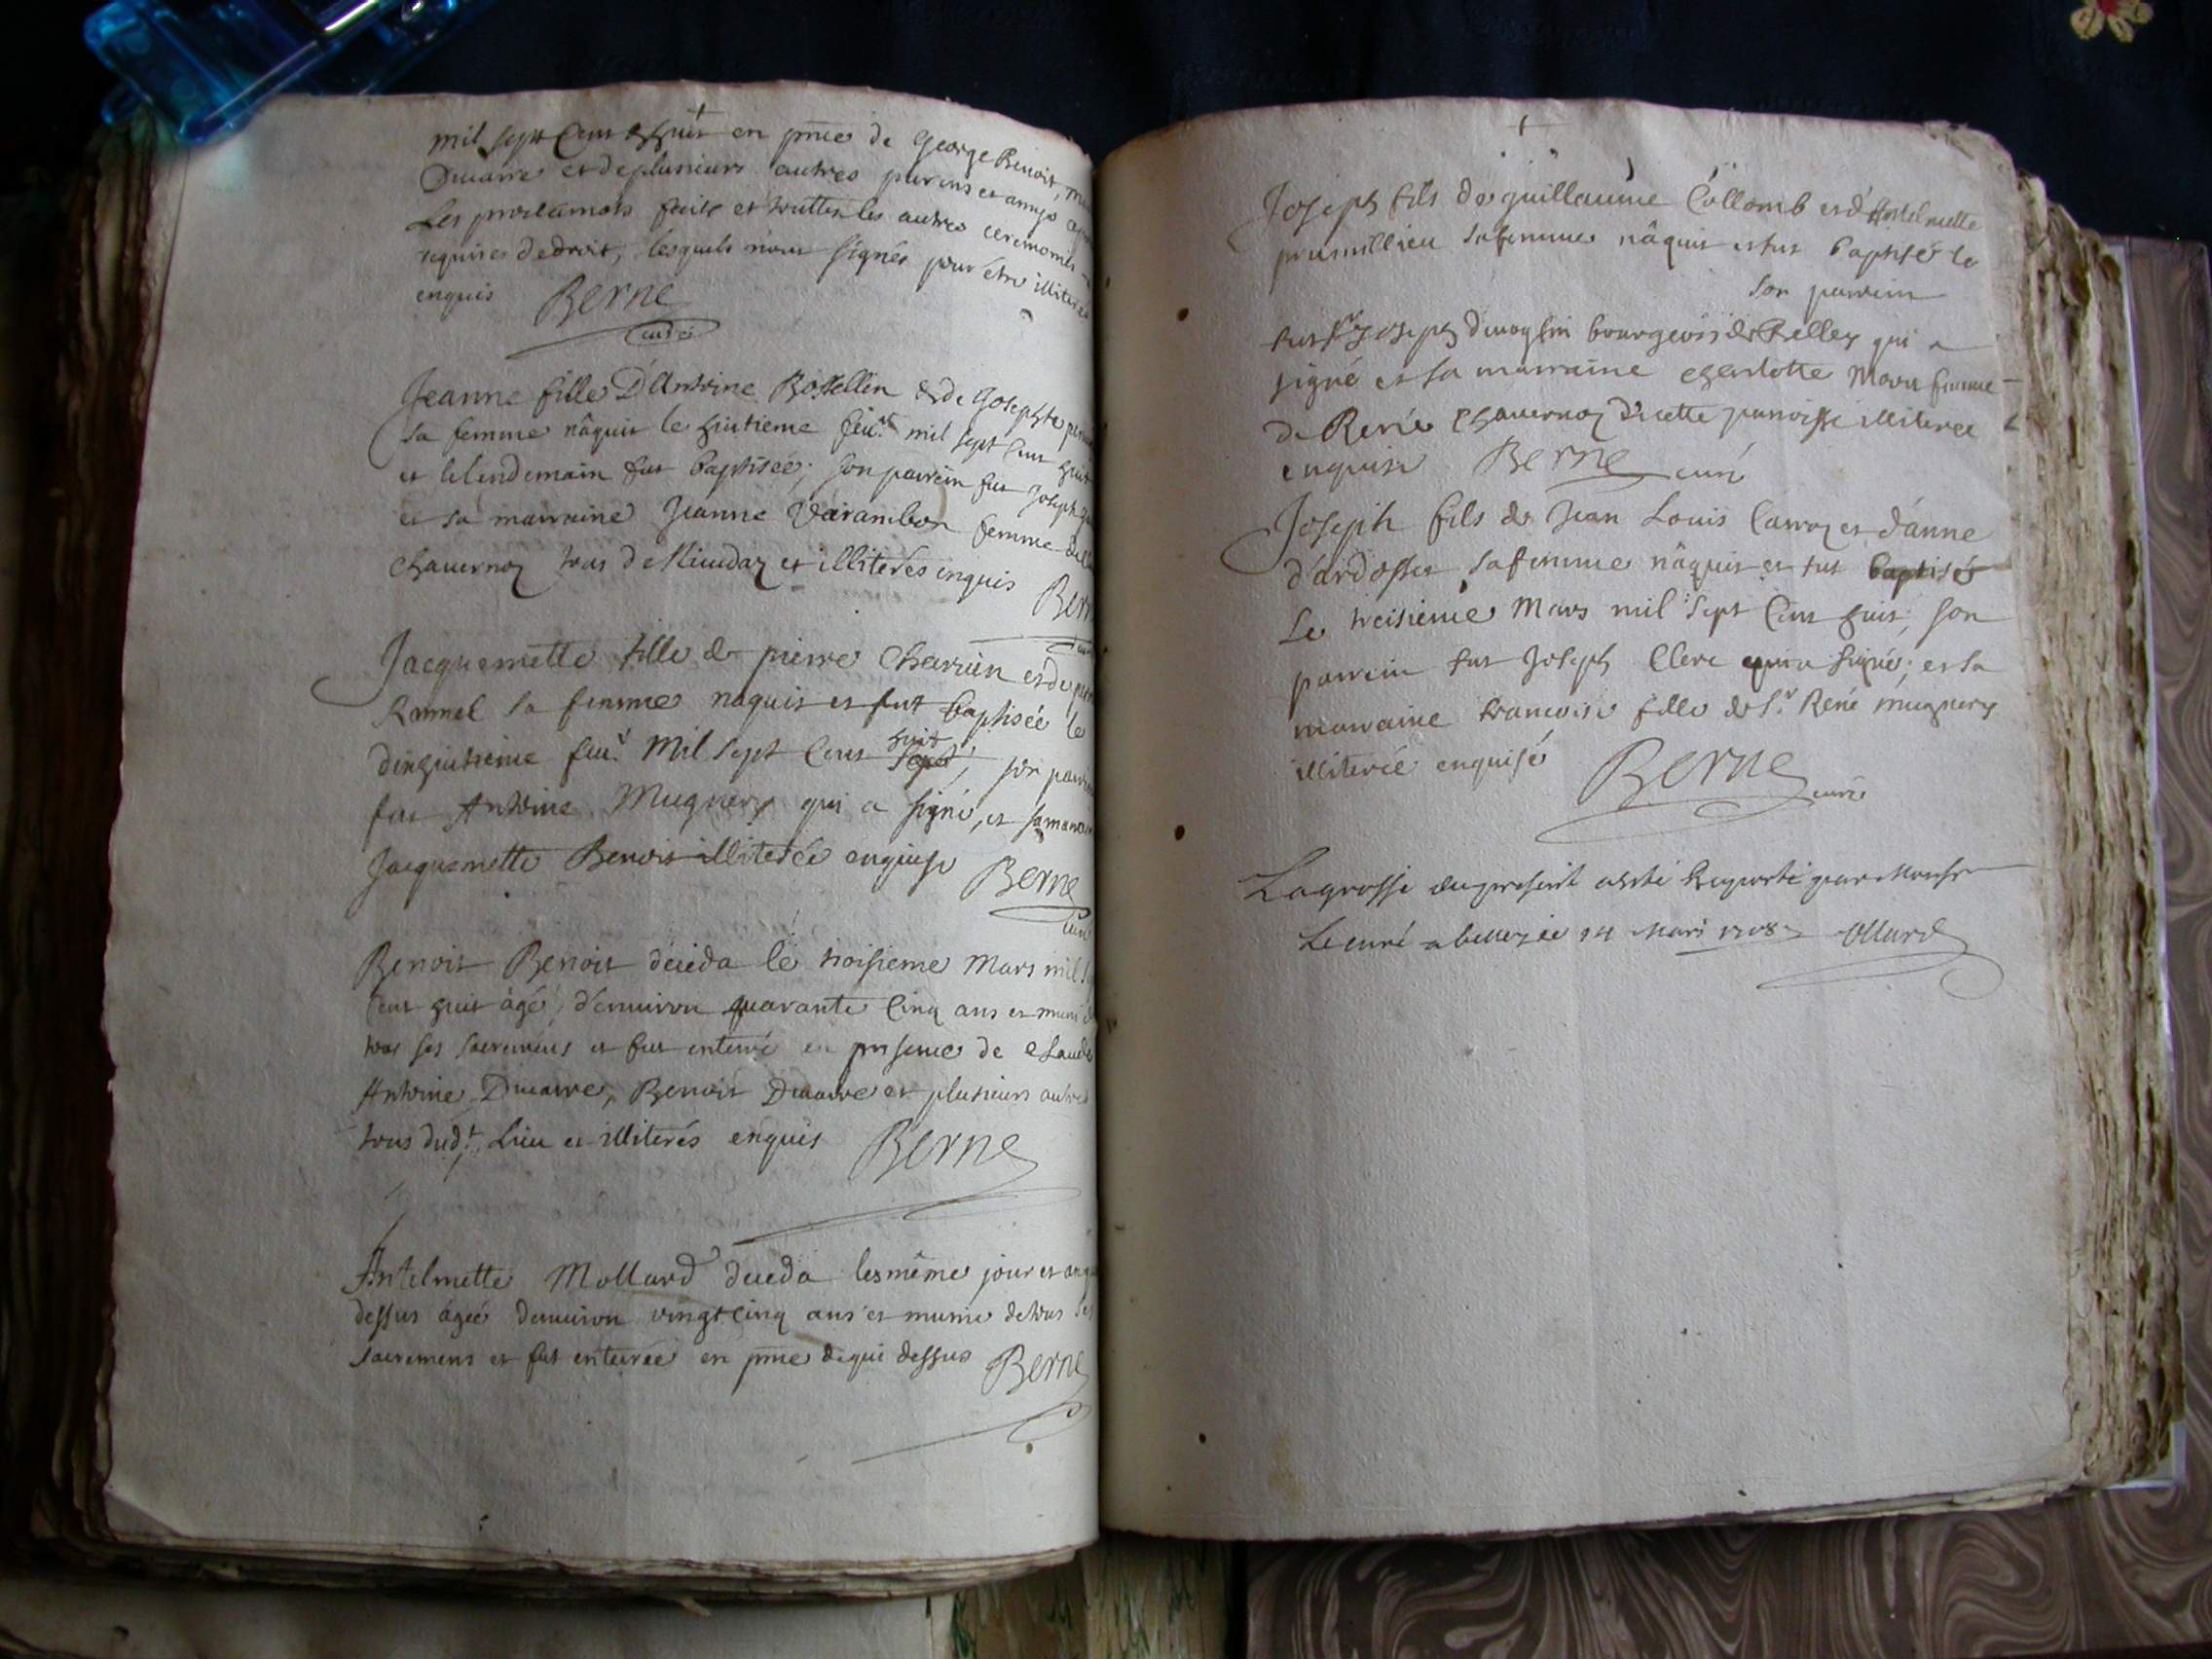 mil sept Cens & huit en pnce de George Benoit,
Ducarre et de plusieurs autres parens et amys
Les proclamats faits et touttes les autres ceremonies
requises de droit, lesquels n'ont signés pour être illiterés
enquis Berne
curé
Jeanne fille D'Antoine Bossellin & de Josephte
sa femme nâquit le huitieme feu.r mil sept Cens huit
et le lendemain fut baptisée; son parrein fut Joseph
et sa marraine Jeanne Varambon femme de
Chavernoz tous de et illiterés enquis Berne
Jacquemette fille de pierre Charrin et de
sa femme naquit et fut baptisée le
dixhuitieme feu.r Mil Sept Cens huit sept, son parrein
fut Antoine Mugnery qui a signé, et sa marraine
Jacquemette Benoit illiterée enquise Berne
curé
Benoit Benoit déceda le troisieme Mars mil
Cens huit âgé d'environ quarante Cinq ans et muni
tous ses sacremens et fut enterré en presence de Claude
Antoine Ducarre, Benoit Ducarre et plusieurs autres
tous dud.t Lieu et illiterés enquis Berne
Antelmette Mollard deceda les même jour et an
dessus âgée d'environ vingt cinq ans et munie de tous ses
sacremens et fut enterrée en pnce de qui dessus Berne
Joseph fils de guillaume Collomb et d'Antelmette
prumillieu sa femme nâquit et fut baptisé le
son parrein
fut Sr Joseph bourgeois de Belley qui a
signé et sa marraine Charlotte femme
de René Chavernoz d'icette paroisse illiteree
enquise Berne curé
Joseph fils de Jean Louis Carroz et d'anne
d'ardosset sa femme nâquit et fut baptisé
Le treisieme Mars mil sept Cens huit, son
parrein fut Joseph Clerc qui a signé; et sa
marraine francoise fille de S.r René mugnery
illiterée enquisé Berne
curé
La grosse du present a esté Raporté par Monsr
Le curé a belley ce 14 Mars 1708 Ollard